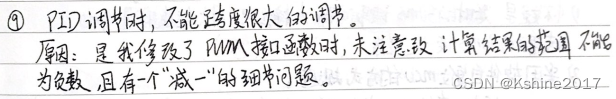 ⑨ PID 调节时，不能跨度很大的调节。
原因：是我修改了 PWM 接口函数时，未注意改 计算结果的范围 不能
为负数，且有一个“减一”的细节问题。
CSDN @Kshine2017